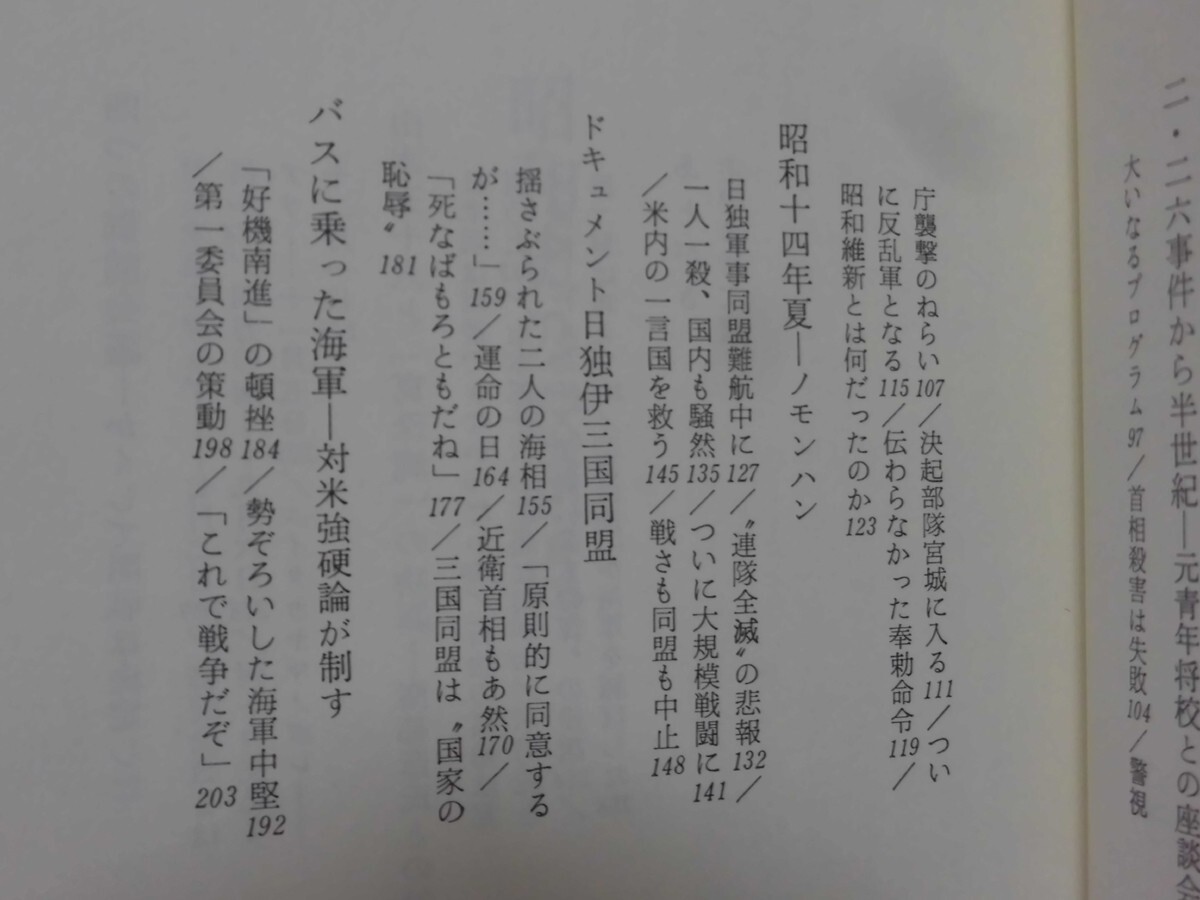 二・二六事件から半世紀―元青年将校との座談会
大いなるプログラム97／首相殺害は失敗104／警視
庁襲撃のねらい107／決起部隊宮城に入る111／つい
に反乱軍となる115／伝わらなかった奉勅命令119／
昭和維新とは何だったのか123
昭和十四年夏―ノモンハン
日独軍事同盟難航中に127／〝連隊全滅〟の悲報132／
一人一殺、国内も騒然135／ついに大規模戦闘に141
／米内の一言国を救う145／戦さも同盟も中止148
ドキュメント日独伊三国同盟
揺さぶられた二人の海相155／「原則的に同意する
が……」159／運命の日164／近衛首相もあ然170／
「死なばもろともだね」177／三国同盟は〝国家の
恥辱〟181
バスに乗った海軍―対米強硬論が制す
「好機南進」の頓挫184／勢ぞろいした海軍中堅192
／第一委員会の策動198／「これで戦争だぞ」203